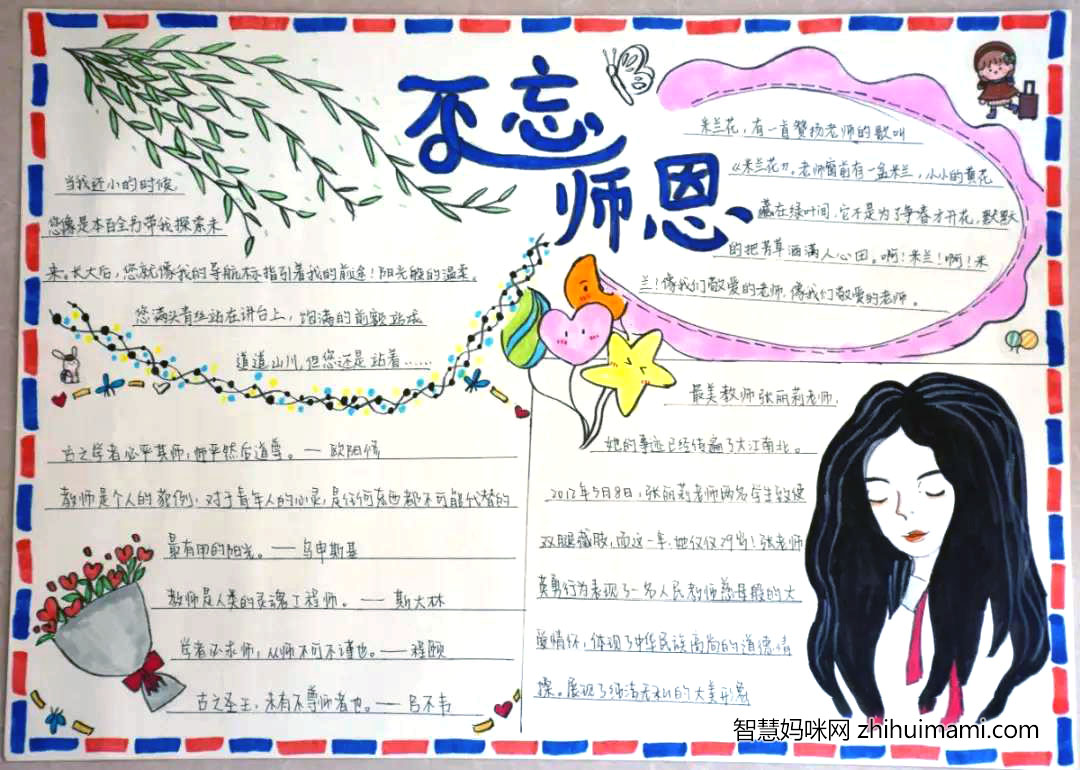 不忘
师恩
当我还小的时候
您像是本百全书带我探索未
来。长大后，您就像我的导航标指引着我的前途！阳光般的温柔。
您满头青丝站在讲台上，饱满的前额
道道山川，但您还是站着……
米兰花，有一首赞扬老师的歌叫
《米兰花》。老师窗前有一盆米兰，小小的黄花
藏在绿叶间，它不是为了争春才开花，默默
的把芳草洒满人心田。啊！米兰！啊！米
兰！像我们敬爱的老师，像我们敬爱的老师。
古之学者必严其师，师严然后道尊。——欧阳修
教师是个人的范例，对于青年人的心灵，是任何东西都不可能代替的
最有用的阳光。——乌申斯基
教师是人类的灵魂工程师。——斯大林
学者必求师，从师不可不谨也。——程颐
古之圣王，未有不尊师者也。——吕不韦
最美教师张丽莉老师，
她的事迹已经传遍了大江南北。
2012年5月8日，张丽莉老师两名学生致使
双腿截肢，而这一年，她仅仅29岁！张老师
英勇行为表现了一名人民教师慈母般的大
爱情怀，体现了中华民族高尚的道德情
操。展现了纯洁无私的大美形象
智慧妈咪网 zhihuimami.com